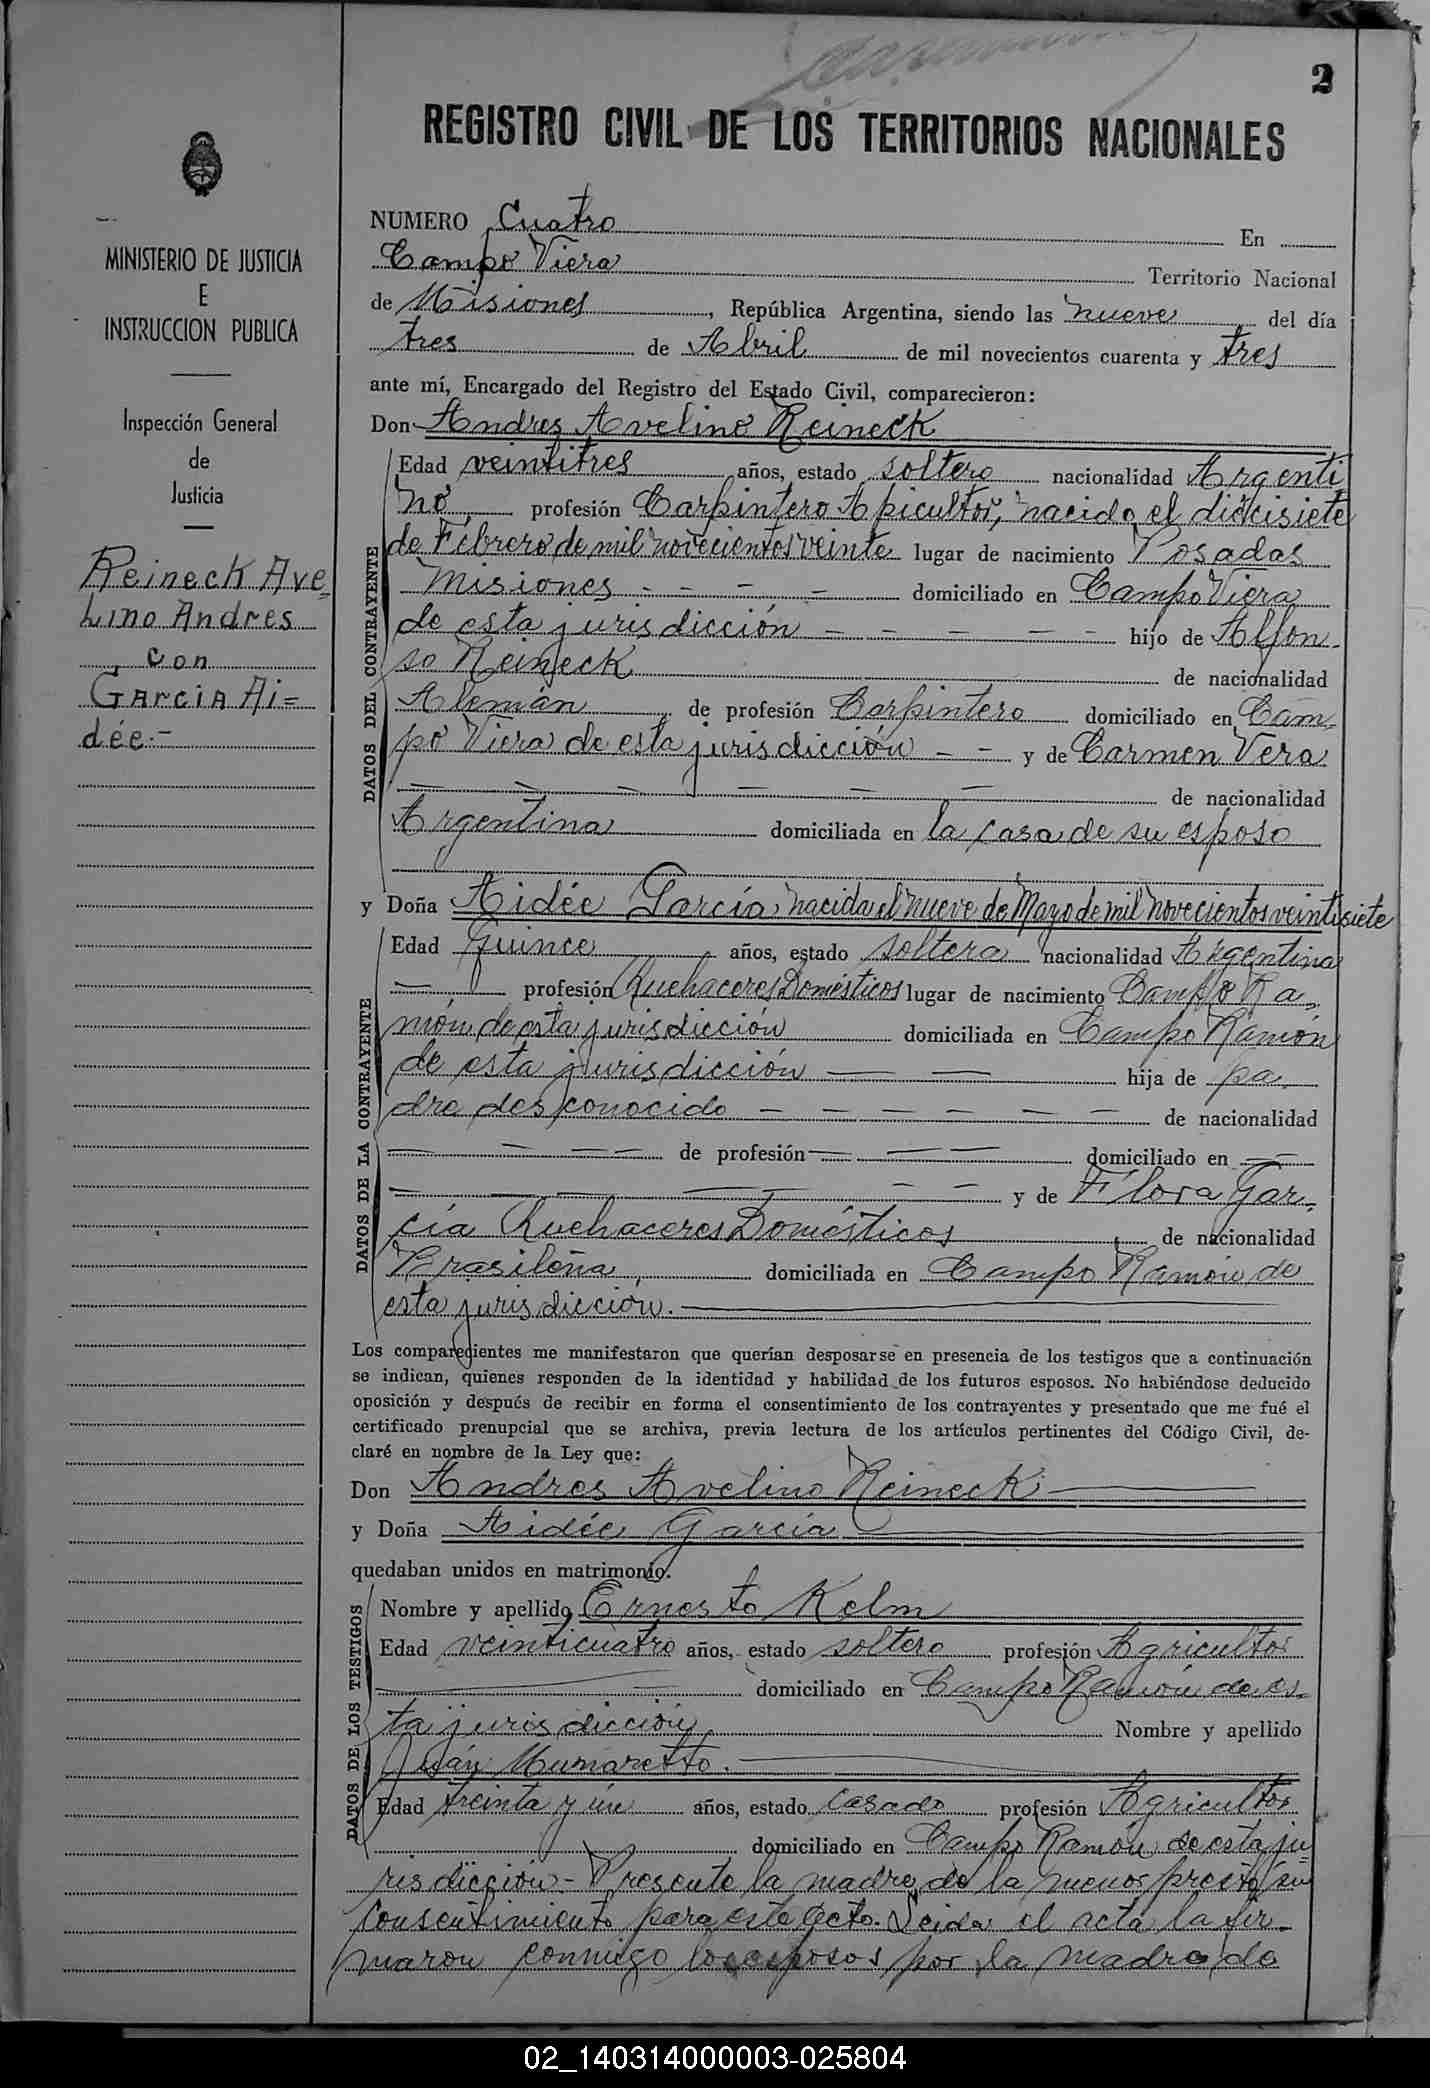 2
REGISTRO CIVIL DE LOS TERRITORIOS NACIONALES
MINISTERIO DE JUSTICIA
E
INSTRUCCION PUBLICA
Inspección General
de
Justicia
Reineck Ave=
lino Andres
con
Garcia Ai=
dée.-
NUMERO Cuatro En
Campo Viera Territorio Nacional
de Misiones, República Argentina, siendo las nueve del día
tres de Abril de mil novecientos cuarenta y tres
ante mí, Encargado del Registro del Estado Civil, comparecieron:
Don Andres Avelino Reineck
DATOS DEL CONTRAYENTE
Edad veintitres años, estado soltero nacionalidad Argenti
no profesión Carpintero Apicultor, nacido el diecisiete
de Febrero de mil novecientos veinte lugar de nacimiento Posadas
Misiones - - - - domiciliado en Campo Viera
de esta jurisdicción - - - - - hijo de Alfon-
so Reineck de nacionalidad
Alemán de profesión Carpintero domiciliado en Cam-
po Viera de esta jurisdicción - - y de Carmen Vera
- - - - - - de nacionalidad
Argentina domiciliada en la casa de su esposo
y Doña Aidée García, nacida el nueve de Mayo de mil novecientos veintisiete
DATOS DE LA CONTRAYENTE
Edad quince años, estado soltera nacionalidad Argentina
— profesión Quehaceres Domésticos lugar de nacimiento Campo Ra-
món de esta jurisdicción domiciliada en Campo Ramón
de esta jurisdicción — — hija de pa-
dre desconocido - - - - - - de nacionalidad
— - - - de profesión — — — domiciliado en - -
— — — — - - - y de Flora Gar-
cía Quehaceres Domésticos de nacionalidad
Brasileña, domiciliada en Campo Ramón de
esta jurisdicción. —
Los comparecientes me manifestaron que querían desposarse en presencia de los testigos que a continuación
se indican, quienes responden de la identidad y habilidad de los futuros esposos. No habiéndose deducido
oposición y después de recibir en forma el consentimiento de los contrayentes y presentado que me fué el
certificado prenupcial que se archiva, previa lectura de los artículos pertinentes del Código Civil, de-
claré en nombre de la Ley que:
Don Andres Avelino Reineck —
y Doña Aidée García —
quedaban unidos en matrimonio.
DATOS DE LOS TESTIGOS
Nombre y apellido Ernesto Kelm
Edad veinticuatro años, estado soltero profesión Agricultor
— domiciliado en Campo Ramón de es-
ta jurisdicción Nombre y apellido
Juán Munaretto. —
Edad treinta y un años, estado casado profesión Agricultor
domiciliado en Campo Ramón de esta ju-
risdicción.- Presente la madre de la menor prestó su
consentimiento para este acto. Leida el acta la fir-
maron conmigo los esposos por la madre de
02_140314000003-025804